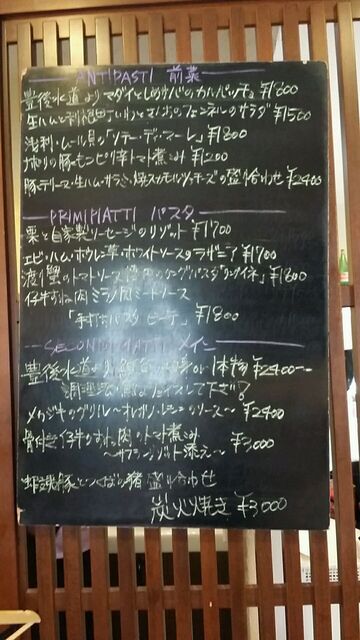 ANTIPASTI 前菜
豊後水道より マダイとしめサバのカルパッチョ ¥1600
生ハムと のフェンネルのサラダ ¥1500
浅利・ムール貝の「ソテー・ディ・マーレ」 ¥1800
豚モツピリ辛トマト煮込み ¥1200
豚テリーヌ・生ハム・サラミ・焼スカモルツァチーズの盛合わせ ¥2400
PRIMI PIATTI パスタ
栗と自家製ソーセージのリゾット ¥1700
エビ・ハム・ホウレン草・ホワイトソースのラザニア ¥1700
渡り蟹のトマトソース 「リングイネ」 ¥1800
仔牛すね肉 ミラノ風ミートソース
「手打ちパスタ ビーゴリ」 ¥1800
SECONDI PIATTI メイン
豊後水道より 1本物 ¥2400~
調理法 チョイスして下さい!
メカジキのグリル ~オレガノ・レモンのソース~ ¥2400
骨付き仔牛のすね肉のトマト煮込み
~サフランリゾット添え~ ¥3,000
豚といのぶたの 盛り合わせ
炭火焼き ¥3,000